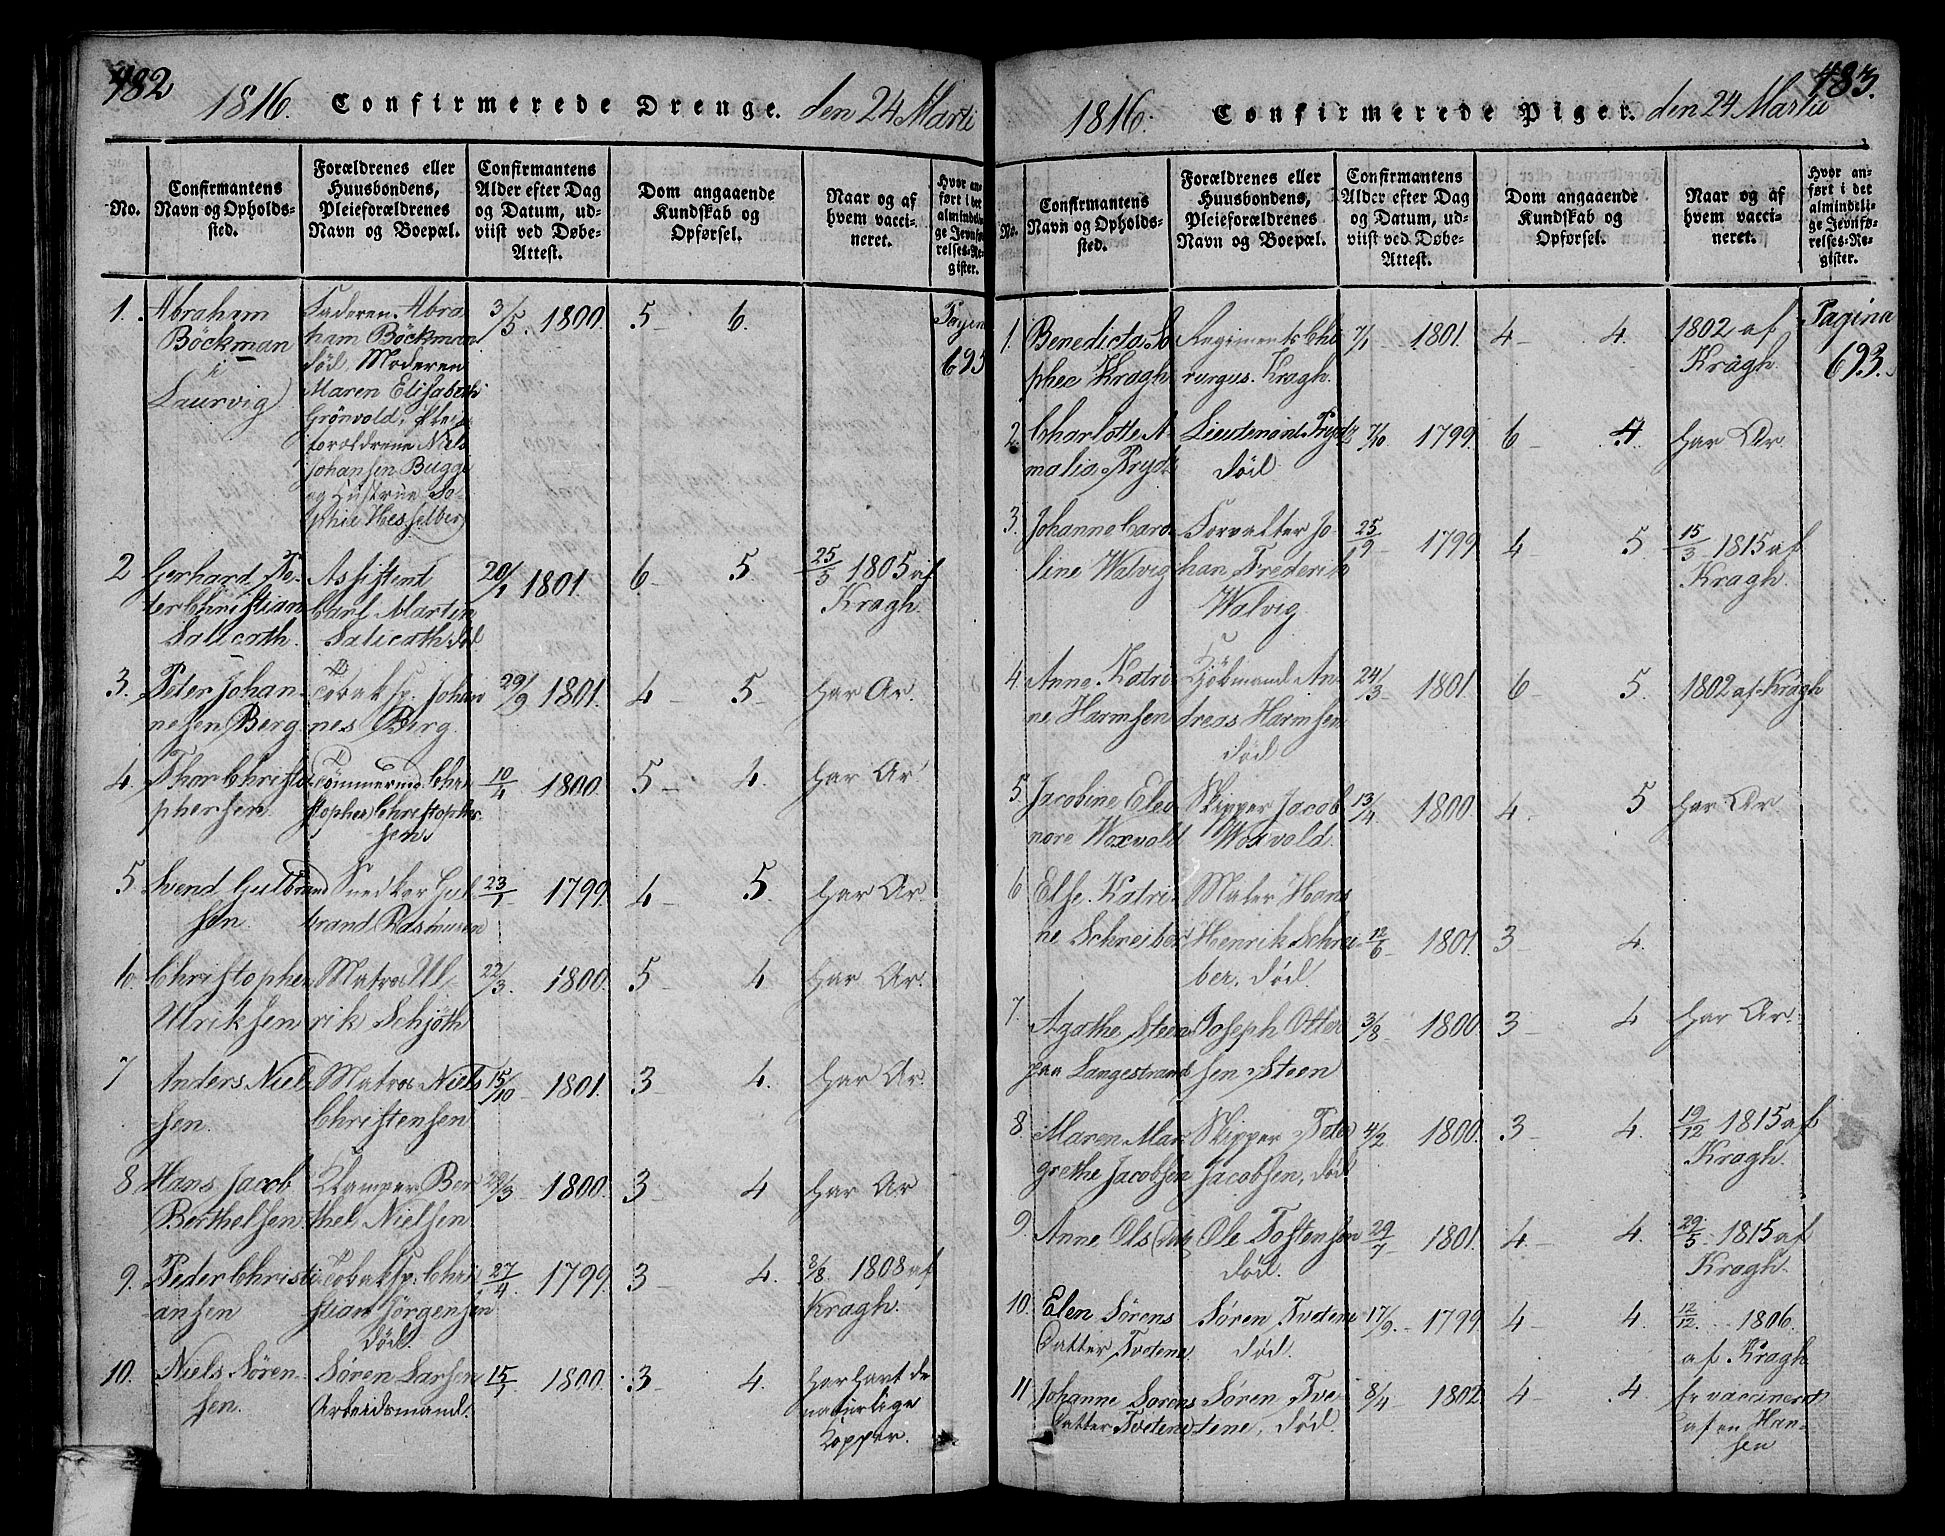 482
1816. Confirmerede Drenge. den 24 Marti
No.
Confirmantens
Navn og Opholds-
sted.
Forældrenes eller
Huusbondens,
Pleieforældrenes
Navn og Boepæl.
Confirmantens
Alder efter Dag
og Datum, ud-
viist ved Døbe-
Attest.
Dom angaaende
Kundskab og
Opførsel.
Naar og af
hvem vacci-
neret.
Hvor an-
ført i det
almindeli-
ge Jevnfø-
relses-Re-
gister.
1. Abraham
Böckman
i
Laurvig
Faderen Abra
ham Böckman
död, Moderen
Maren Elisabeth
Grönvold, Pleie
forældrene Niels
Johansen Bugge
og Hustrue So-
phie Hesselberg
3/5. 1800. 5 6.
Pagina
695
2 Gerhard Pe-
ter Christian
Salicath.
Assistent
Carl Martin
Salicath död
20/1 1801. 6 5
25/3 1805 af
Kragh.
3. Peter Johan-
nesen Berg
Tobaksp. Johan
nes Berg.
29/9 1801. 4 5 har Ar.
4. Thor Christo
phersen
Tömmermd. Chri
stopher Christopher
sen
10/4 1800. 5 4. har Ar
5 Svend Gulbrand
sen.
Snedker Gul
brand Rasmusen
23/1 1799. 4 5. har Ar
6. Christopher
Ulriksen
Matros Ul
rik Schjöth
22/3. 1800. 5 4 har Ar.
7 Anders Niel
sen.
Matros Niels
Christensen
15/10 1801. 3 4. har Ar.
8 Hans Jacob
Berthelsen
Klamper Ber
thel Nielsen
1800. 3 4 har Ar
9. Peder Christi
ansen
Tobaksp. Chri
stian Jörgensen
död.
27/4. 1799. 3 4.
8/8. 1808 af
Kragh.
10. Niels Sören-
sen.
Sören Larsen
Arbeidsmand.
15/1 1800. 3 4.
har havt de
naturlige
Kopper.
483.
1816. Confirmerede Piger. den 24 Martii
No.
Confirmantens
Navn og Opholds-
sted.
Forældrenes eller
Huusbondens,
Pleieforældrenes
Navn og Boepæl.
Confirmantens
Alder efter Dag
og Datum, ud-
viist ved Døbe-
Attest.
Dom angaaende
Kundskab og
Opførsel.
Naar og af
hvem vacci-
neret.
Hvor an-
ført i det
almindeli-
ge Jevnfø-
relses-Re-
gister.
1. Benedicta So
phie Kragh
Regiments Chi
rurgus. Kragh.
7/1 1801. 4 4.
1802 af
Kragh.
Pagina
693.
2. Charlotte A
malia Prydz
Lieutenant Prydz
död.
7/10 1799. 6 4. har Ar
3. Johanne Caro
line Walvig
Forvalter Jo-
han Frederik
Walvig.
25/9 1799 4 5
15/3 1815 af
Kragh.
4. Anne Katri
ne Harmsen
Kjökmand An-
dreas Harmsen
död
24/3 1801. 6 5. 1802 af Kragh
5. Jacobine Eleo
nore Woxvold
Skipper Jacob
Woxvold.
13/4 1800. 4. 5 har Ar
6 Else Katri-
ne Schreiber
Maler Hans
Henrik Schrei
ber, död.
12/6 1801. 3 4.
7 Agathe Steen
paa Langestrand
Joseph Otter
sen Steen
3/8 1800 3 4 har Ar.
8. Maren Mar
grethe Jacobsen
Skipper Peter
Jacobsen, död
4/2 1800. 3 4.
19/12 1815 af
Kragh.
9. Anne Ols Datt
Ole Tostensen
död.
29/7 1801. 4 4.
29/5 1815 af
Kragh.
10. Elen Sörens
Datter Tvetene
Sören Tvetene
död.
17/9. 1799 4 4.
12/12. 1806.
af Kragh
11 Johanne Sörens
Datter Tvetene
Sören Tve-
tene, död.
8/4 1802 4 4.
er vaccineret
af en Han-
sen